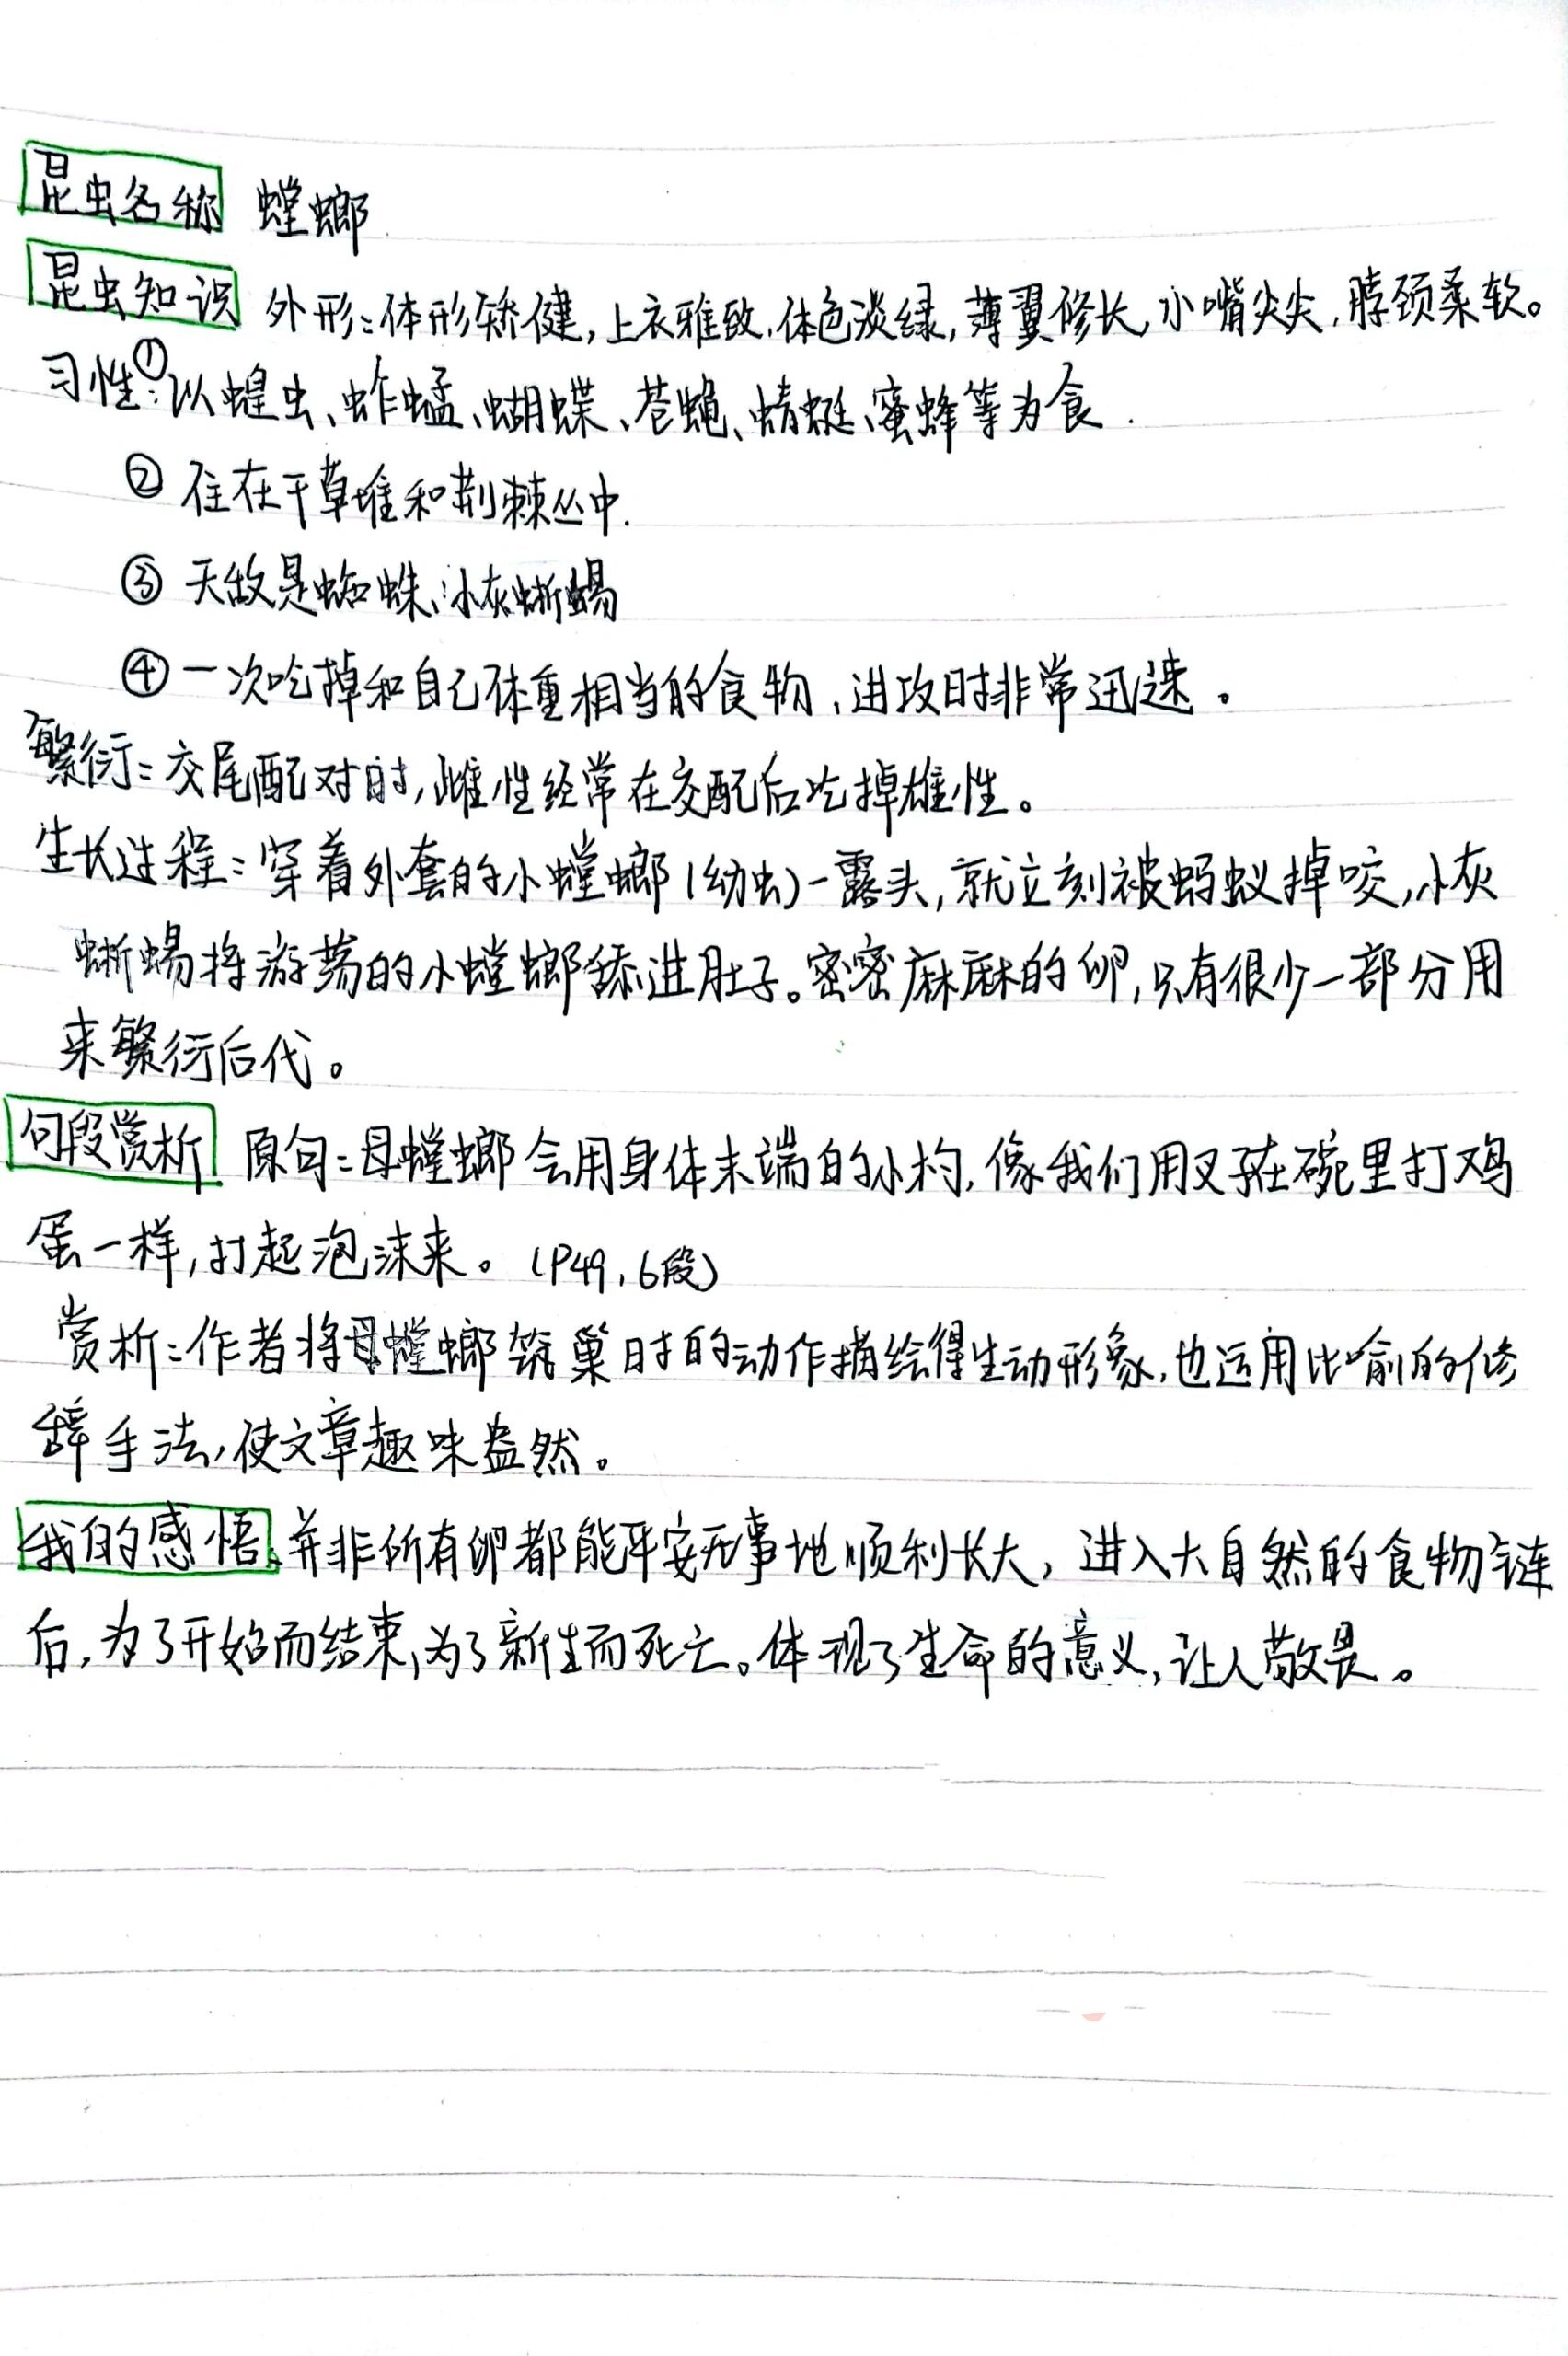 昆虫名称 螳螂
昆虫知识 外形:体形矫健,上衣雅致,体色淡绿,薄翼修长,小嘴尖尖,脖颈柔软。
习性:①以蝗虫、蚱蜢、蝴蝶、苍蝇、蜻蜓、蜜蜂等为食.
② 住在干草堆和荆棘丛中.
③ 天敌是蜘蛛、小灰蜥蜴
④一次吃掉和自己体重相当的食物,进攻时非常迅速。
繁衍:交尾配对时,雌性经常在交配后吃掉雄性。
生长过程:穿着外套的小螳螂(幼虫)一露头,就立刻被蚂蚁掉咬,小灰
蜥蜴将游荡的小螳螂舔进肚子。密密麻麻的卵,只有很少一部分用
来繁衍后代。
句段赏析 原句:母螳螂会用身体末端的小杓,像我们用叉子在碗里打鸡
蛋一样,打起泡沫来。(P49,6段)
赏析:作者将母螳螂筑巢时的动作描绘得生动形象,也运用比喻的修
辞手法,使文章趣味盎然。
我的感悟:并非所有卵都能平安无事地顺利长大,进入大自然的食物链
后,为了开始而结束,为了新生而死亡。体现了生命的意义,让人敬畏。